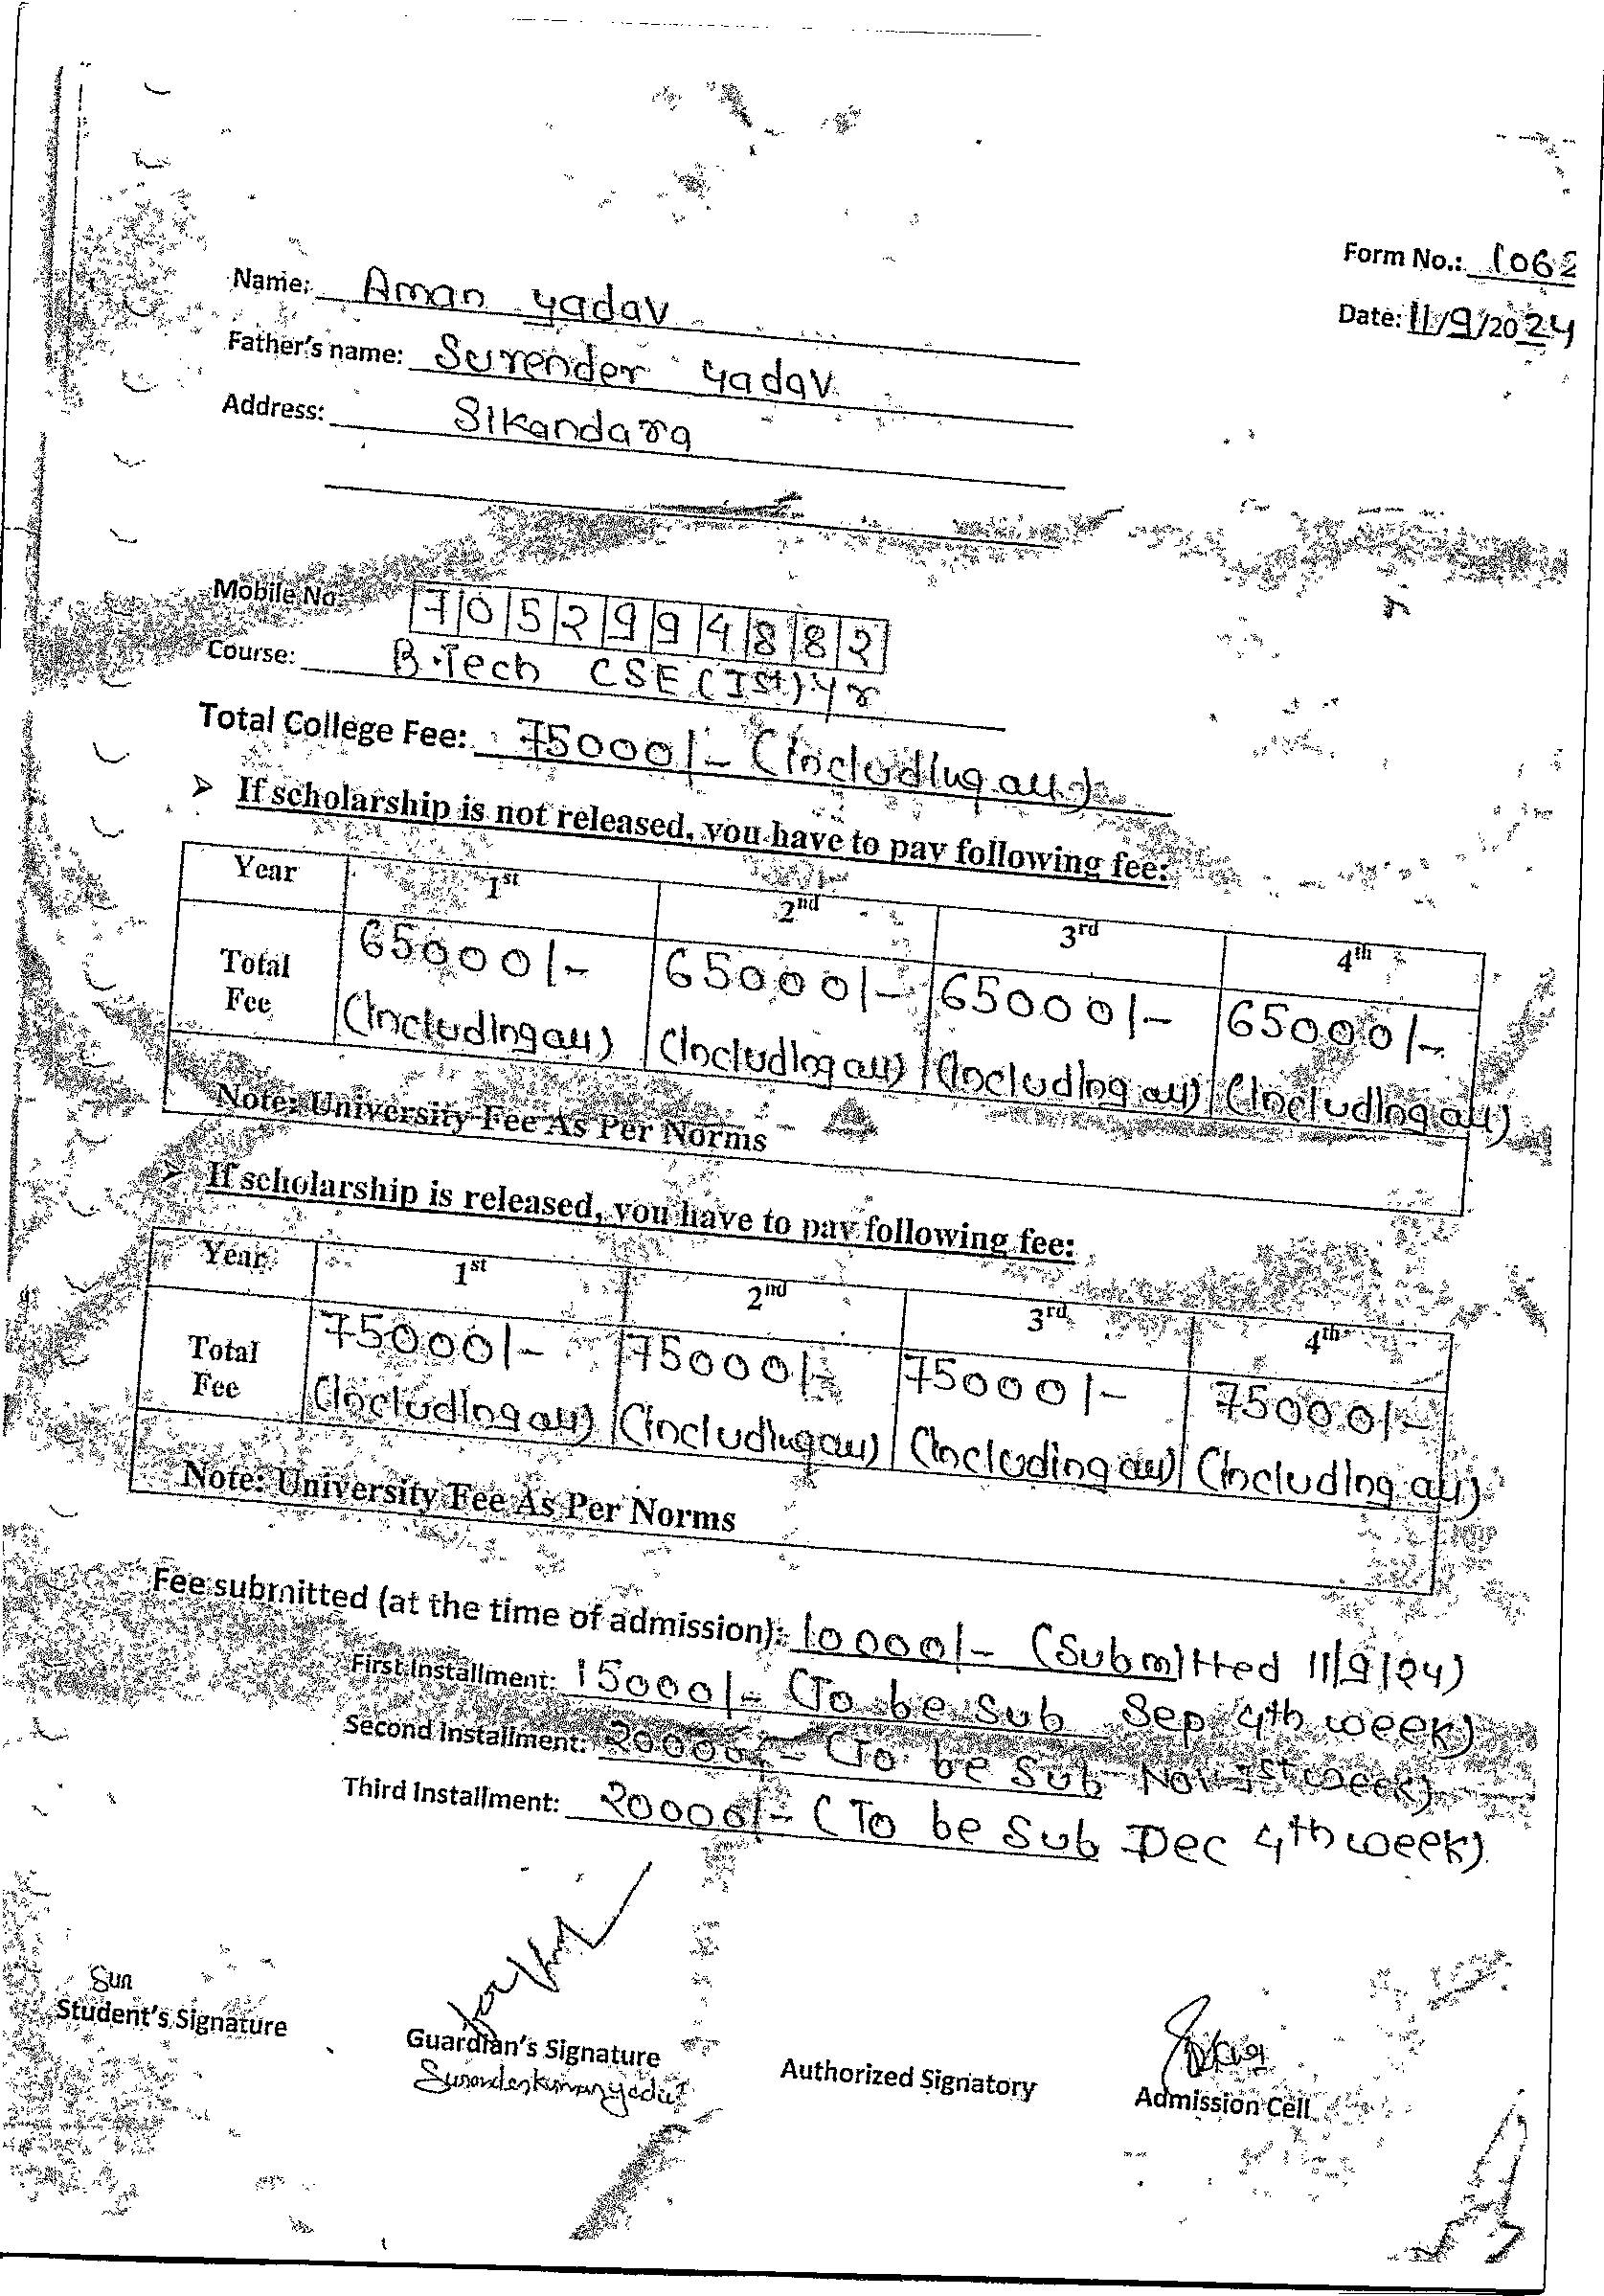 Form No.: 1062
Name: Aman yadav
Date: 11/9/2024
Father's name: Surender yadav
Address: Sikandara
Mobile No. 7052994882
Course: B.Tech CSE (Ist) yr
Total College Fee: 75000/- (Including all)
➤ If scholarship is not released, you have to pay following fee:
Year 1st 2nd 3rd 4th
Total Fee 65000/- 65000/- 65000/- 65000/-
(Including all) (Including all) (Including all) (Including all)
Note: University Fee As Per Norms
➤ If scholarship is released, you have to pay following fee:
Year 1st 2nd 3rd 4th
Total Fee 75000/- 75000/- 75000/- 75000/-
(Including all) (Including all) (Including all) (Including all)
Note: University Fee As Per Norms
Fee submitted (at the time of admission): 10000/- (Submitted 11/9/24)
First Installment: 15000/- (To be Sub Sep 4th week)
Second Installment: 20000/- (To be Sub Nov 1st week)
Third Installment: 20000/- (To be Sub Dec 4th week)
Student's Signature
Guardian's Signature
Surender kumar yadav
Authorized Signatory
Admission Cell